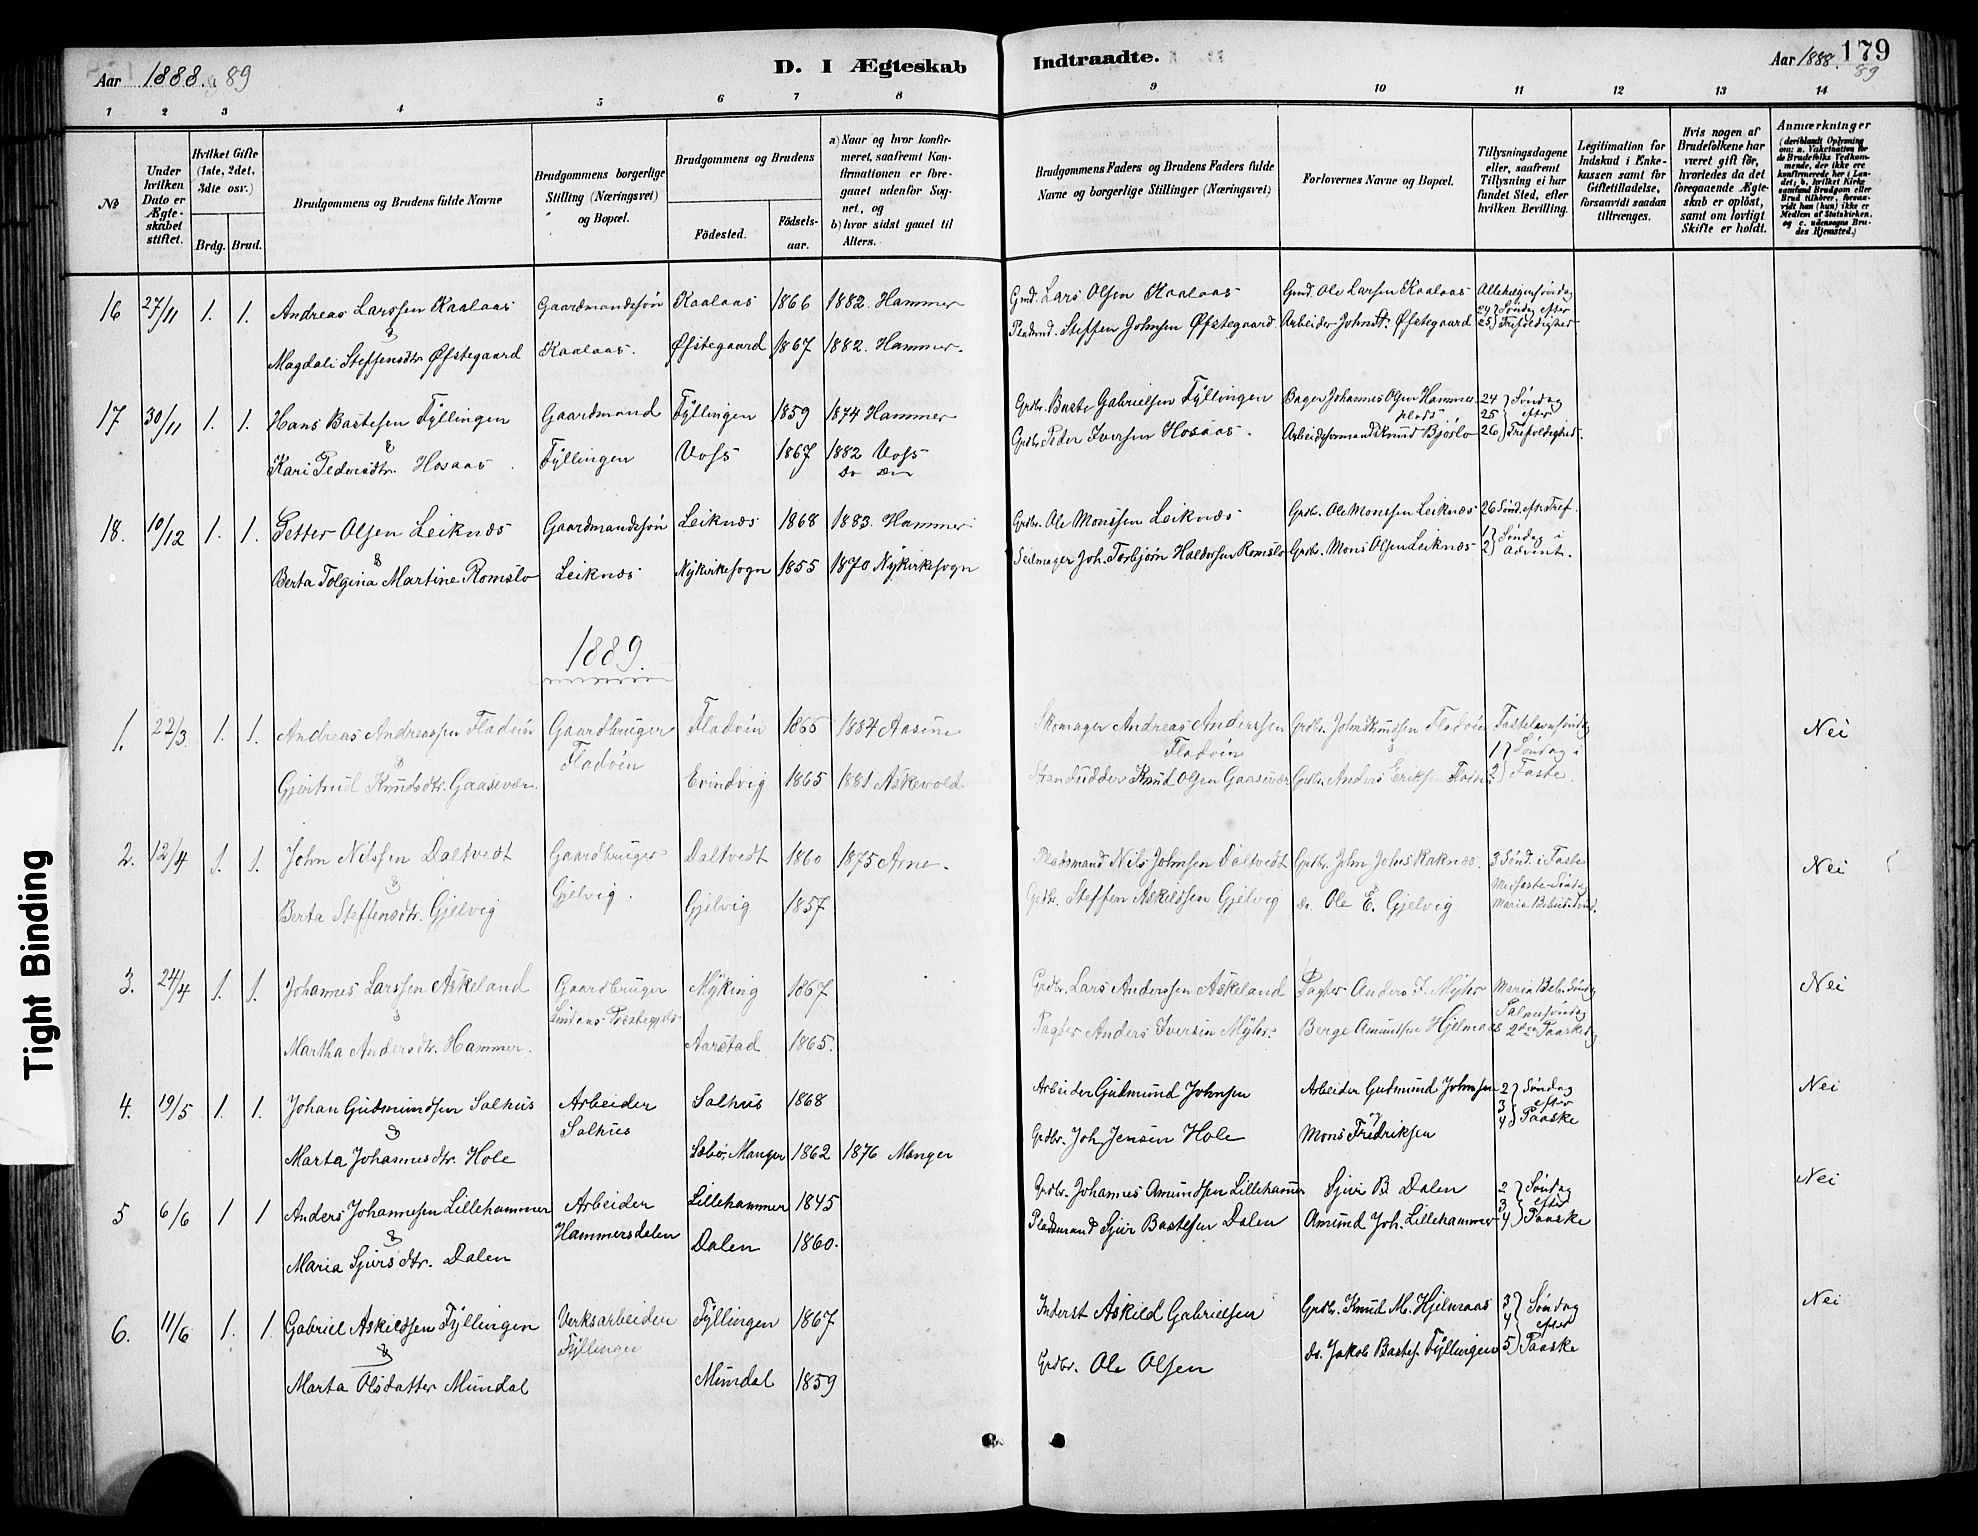 Aar 1888 & 89
D. I Ægteskab Indtraadte.
Aar 1888. 89
179
1 2 3 4 5 6 7 8 9 10 11 12 13 14
No
Under hvilken Dato er Ægteskabet stiftet.
Hvilket Gifte (1ste, 2det, 3die osv.)
Brdg. Brud.
Brudgommens og Brudens fulde Navne
Brudgommens borgerlige Stilling (Næringsvei) og Bopæl.
Brudgommens og Brudens
Fødested.
Fødselsaar.
a) Naar og hvor konfirmeret, saafremt Konfirmationen er foregaaet udenfor Sognet, og
b) hvor sidst gaaet til Alters.
Brudgommens Faders og Brudens Faders fulde Navne og borgerlige Stillinger (Næringsvei)
Forlovernes Navne og Bopæl.
Tillysningsdagene eller, saafremt Tillysning ei har fundet Sted, efter hvilken Bevilling.
Legitimation for Indskud i Enkekassen samt for Giftetilladelse, forsaavidt saadan tiltrænges.
Hvis nogen af Brudefolkene har været gift før, hvorledes da det foregaaende Ægteskab er opløst, samt om lovligt Skifte er holdt.
Anmærkninger (deriblandt Oplysning om: a. Vakcination for de Brudefolks Vedkommende, der ikke ere konfirmerede her i Landet; b. hvilket Kirkesamfund Brudgom eller Brud tilhører, forsaavidt han (hun) ikke er Medlem af Statskirken, og c. udensogns Brudes Hjemsted.)
16 27/11 1. 1. Andreas Larssen Kaalaas Gaardmandssøn Kaalaas 1866 1882. Hammer Gmd. Lars Olsen Kaalaas Gmd. Ole Larsen Kaalaas Allehelgensøndag
& 24 } Søndag efter
Magdali Steffensdtr Øfstegaard Kaalaas. Øfstegaard 1867 1882. Hammer. Pladsmd. Steffen Johnsen Øfstegaard. Arbeider John St. Øfstegaard 25 } Trefoldighed
17 30/11 1. 1. Hans Bastesen Fyllingen Gaardmand Fyllingen 1859 1874 Hammer Grdbr. Baste Gabrielsen Fyllingen Bager Johannes Olsen Hammersplads 24 } Søndag
& 25 } efter
Kari Pedersdtr. Hosaas Fyllingen Voss 1867 1882 Voss Grdbr. Peder Iversen Hosaas. Arbeidsformand Knud Bjørslo 26 } Trefoldighed.
18. 10/12 1. 1. Petter Olsen Leiknæs Gaardmandssøn Leiknæs 1868 1883. Hammer Grdbr. Ole Monssen Leiknæs Grdbr. Ole Monssen Leiknæs 26 Sønd. eft. Tref.
& 1 } Søndag i
Berta Tolgina Martine Romslo Leiknæs Nykirkesogn 1855 1870 Nykirkesogn Seilmager Joh. Torbjørn Haldorsen Romslo Grdbr. Mons Olsen Leiknæs 2 } Advent.
1889.
1. 22/3 1. 1. Andreas Andreassen Fladvin Gaardbruger Fladvin 1865 1884 Aasine Skomager Andreas Anderssen Fladvin Grdbr. John Knudsen Fladvin Fastelavnsøndag Nei
& Fladvin 1 } Søndag i
Gjertrud Knudsdtr. Gaasevær. Evindvig 1865 1881 Askevold Strandsidder Knud Olsen Gaasevær Grdbr. Anders Eriksen 2 } Faste.
2. 12/4 1. 1. John Nilssen Daltvedt Gaardbruger Daltvedt 1860 1875 Arne. Pladsmand Nils Johnsen Daltvedt Grdbr. John Johns Raknæs. 3 Sønd. i Faste Nei
& Gjelvig. Midfaste-Søndag
Berta Steffensdtr. Gjelvig Gjelvig 1857 Grdbr. Steffen Askildsen Gjelvig do. Ole E. Gjelvig Maria Bebud. Sønd.
3. 24/4 1. 1. Johannes Larssen Askeland Gaardbruger Myking 1867 Grdbr. Lars Anderssen Askeland Pagter Anders I. Myhr Maria Beb. Søndag Nei
& Lindaas Præstegjeld Palmesøndag
Martha Andersdtr. Hammer. Aarstad 1865. Pagter Anders Iversen Myhr. Berge Amundsen Hjelmaas 2den Paaskedag
4. 19/5 1. 1. Johan Gudmundsen Salhus Arbeider Salhus 1868 Arbeider Gudmund Johnsen Arbeider Gudmund Johnsen 2 } Søndag Nei
& Salhus og 3 } efter
Marta Johannesdtr. Hole Sæbø, Manger 1862 1876 Manger Grdbr. Joh. Jensen Hole Mons Fredriksen 4 } Paaske
5 6/6 1 1 Anders Johannesen Lillehammer Arbeider Lillehammer 1845 Grdbr. Johannes Amundsen Lillehammer Sjur B Dalen 2 } Søndag Nei
& Hammersdalen 3 } efter
Maria Sjursdtr. Dalen Dalen 1860. Pladsmand Sjur Bastesen Dalen Amund Joh. Lillehammer 4 } Paaske
6. 11/6 1. 1. Gabriel Askildsen Fyllingen Verksarbeider Fyllingen 1867 Inderst Askild Gabrielsen Grdbr. Knud M. Hjelmaas 3 } Søndag Nei
& Fyllingen 4 } efter
Marta Olsdatter Mundal Mundal 1859 Grdbr. Ole Olsen do. Jakob Bastes. Fyllingen 5 } Paaske
Tight Binding